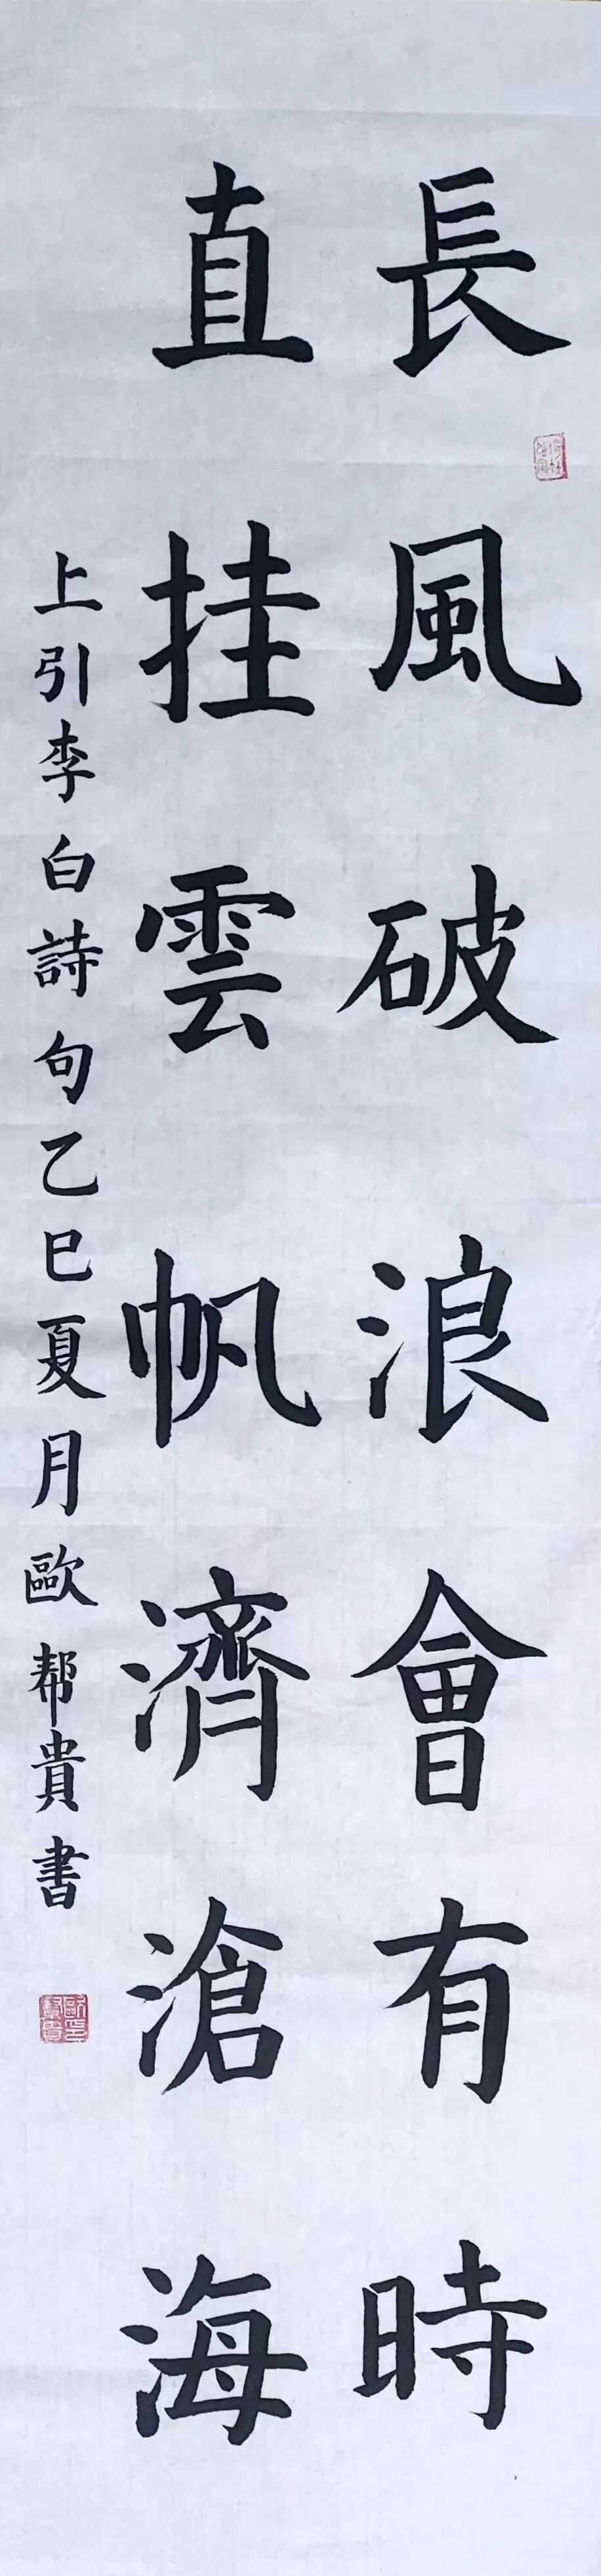 長風破浪會有時
直挂雲帆濟滄海
上引李白詩句乙巳夏月歐帮貴書